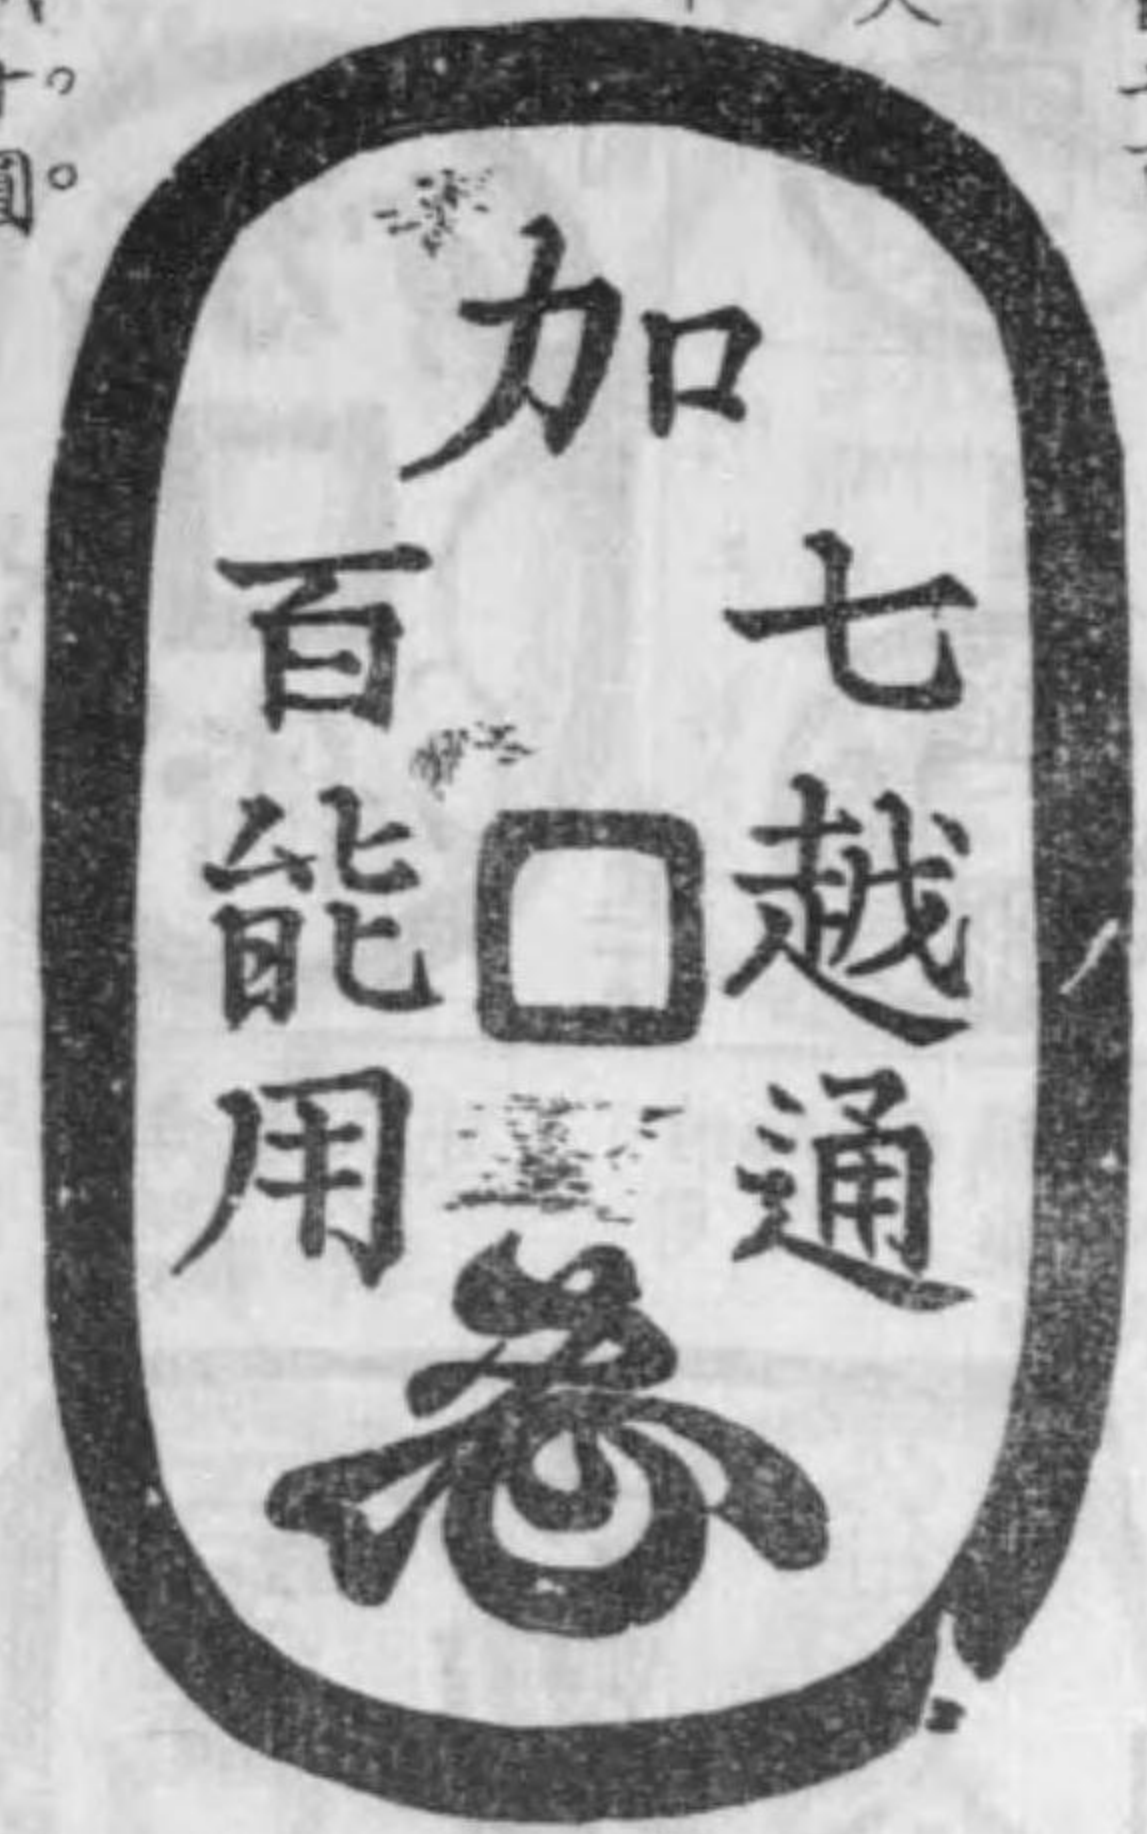 加
七越通
百能用